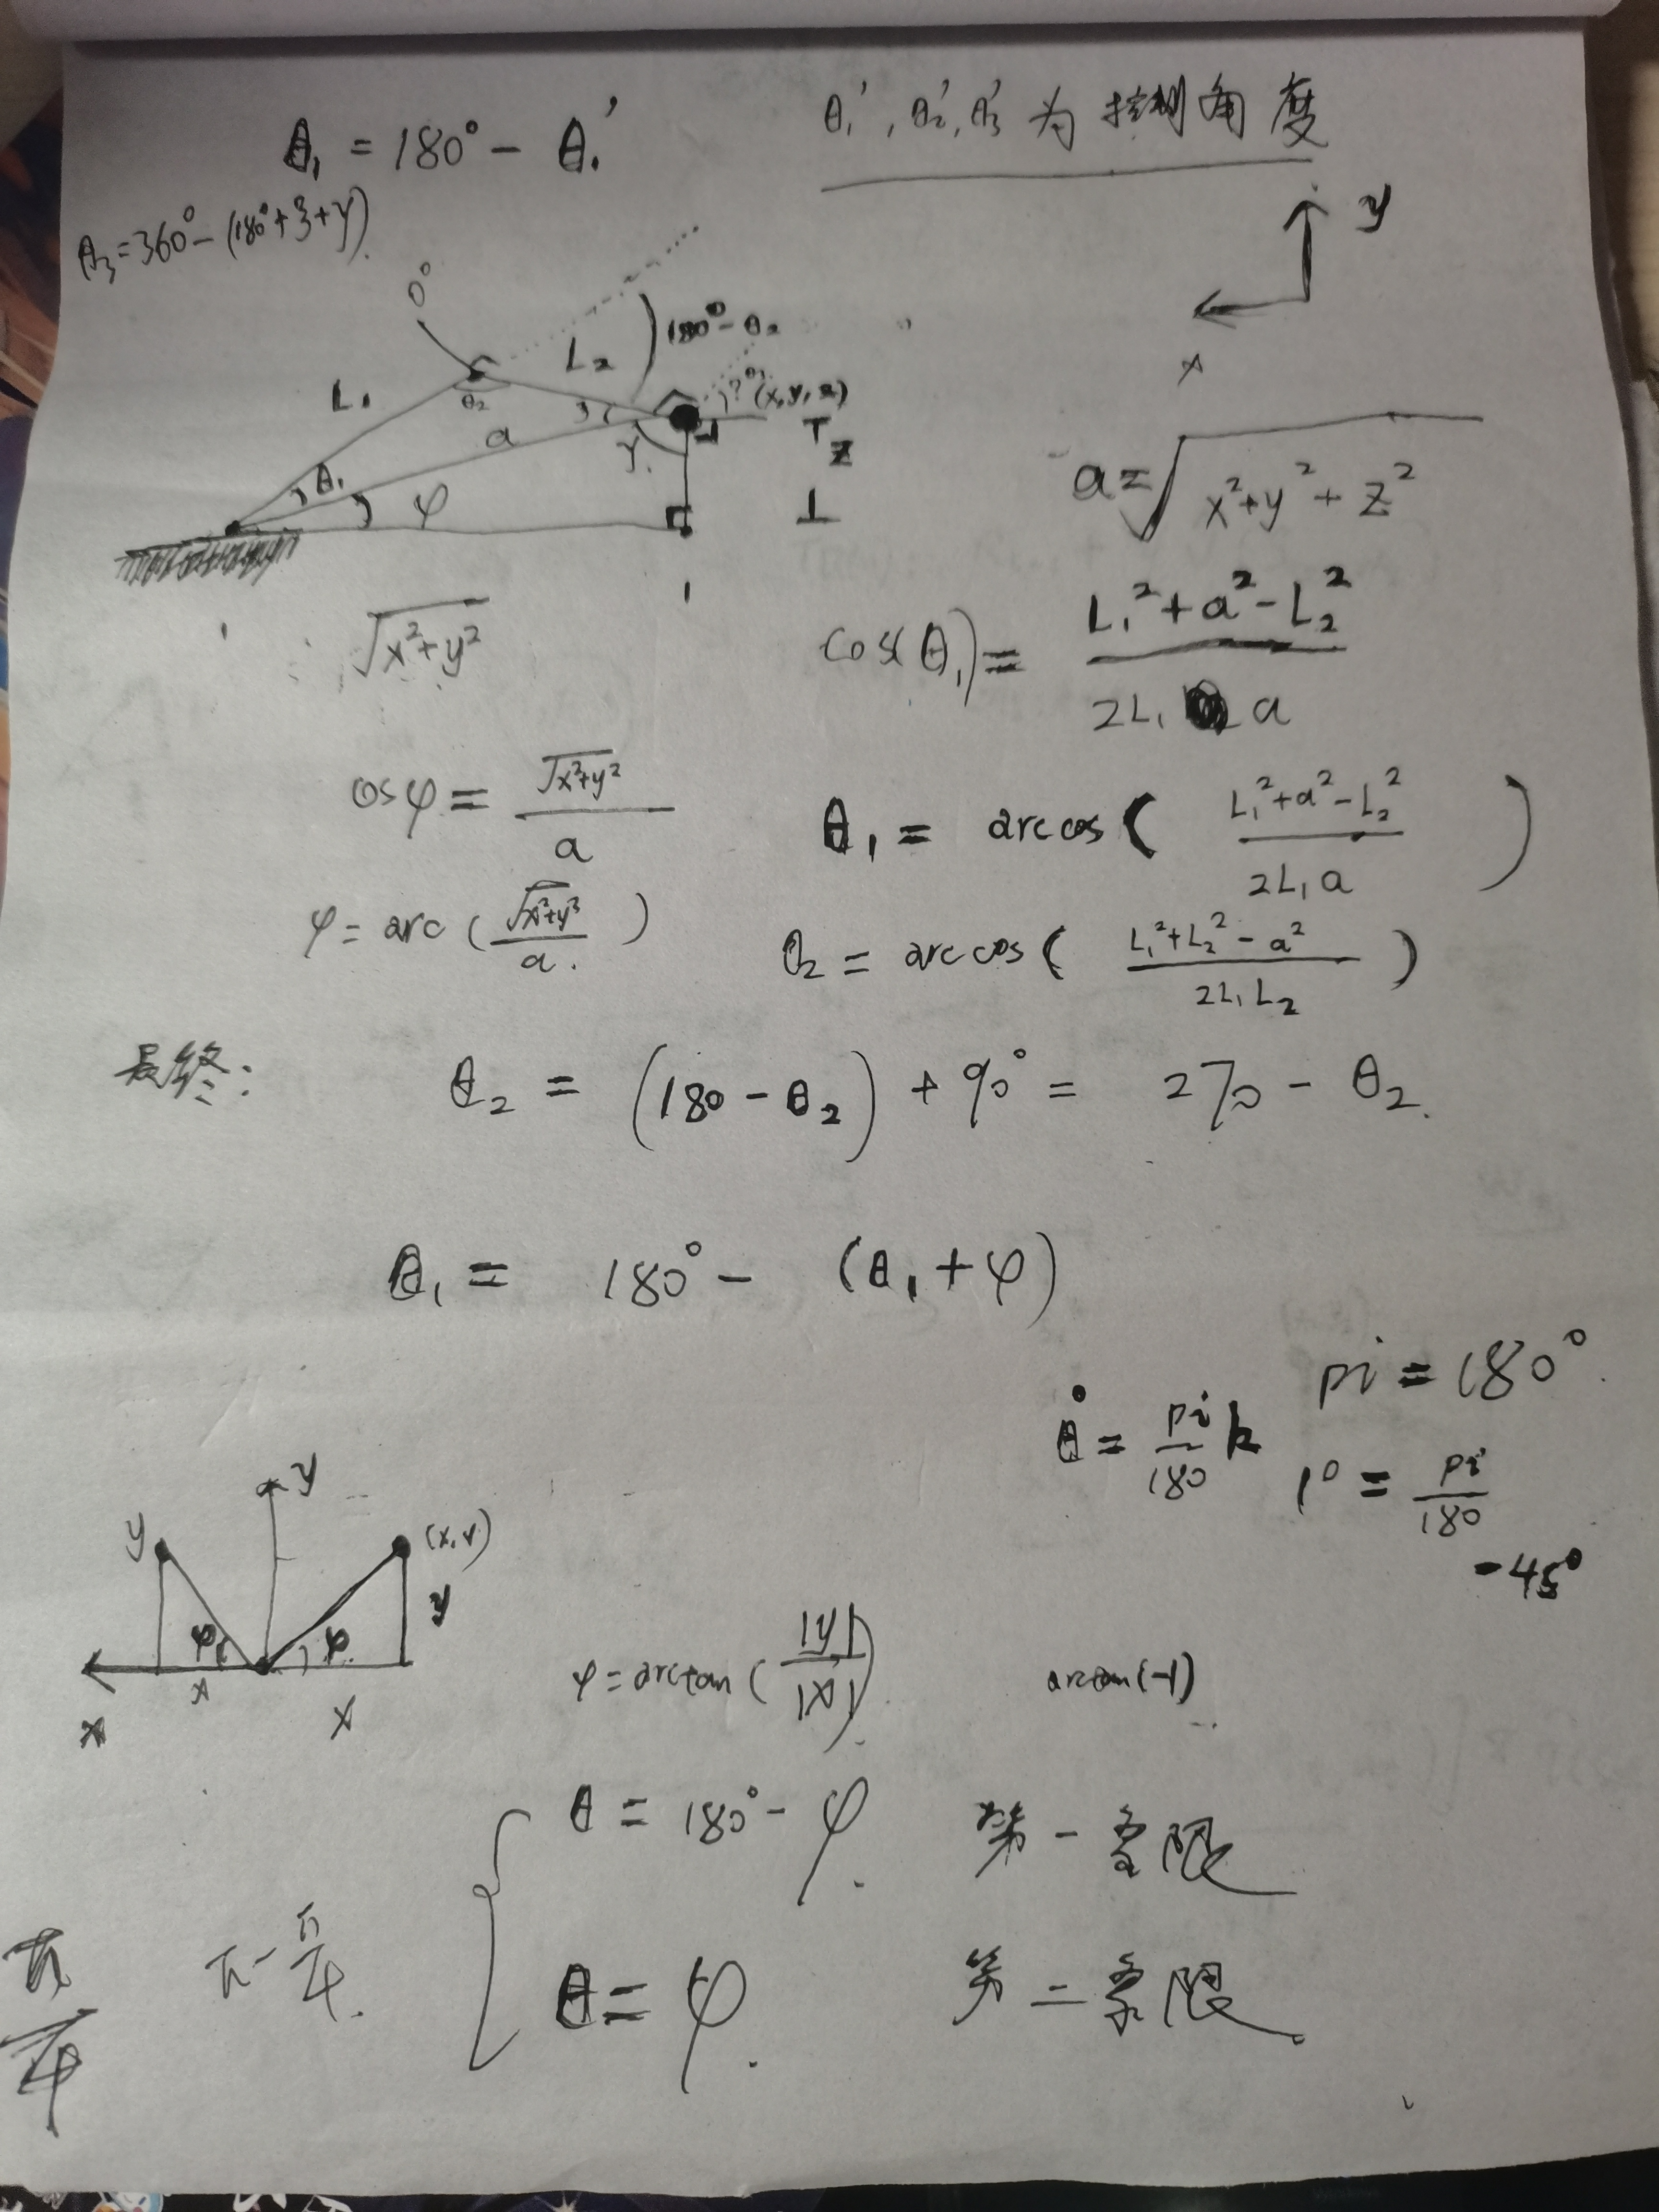 θ₁ = 180° - θ₁'
θ₁', θ₂', θ₃' 为控制角度
θ₃ = 360° - (180° + ξ + γ)
y
x
0°
L₁
L₂
180° - θ₂
θ₂
(x, y, z)
a
γ
θ₁
φ
z
a = √(x² + y² + z²)
√(x² + y²)
cos(θ₁) = (L₁² + a² - L₂²) / (2L₁a)
cosφ = √(x² + y²) / a
θ₁ = arccos((L₁² + a² - L₂²) / (2L₁a))
φ = arc(√(x² + y²) / a)
θ₂ = arccos((L₁² + L₂² - a²) / (2L₁L₂))
最终:
θ₂ = (180 - θ₂) + 90° = 270 - θ₂.
θ₁ = 180° - (θ₁ + φ)
pi = 180°
θ° = pi/180 k
1° = pi/180
-45°
y
y
(x, y)
y
φ
φ
x
x
x
φ = arctan(|y|/|x|)
arctan(-1)
θ = 180° - φ. 第一象限
θ = φ. 第二象限
π/4
π - π/4